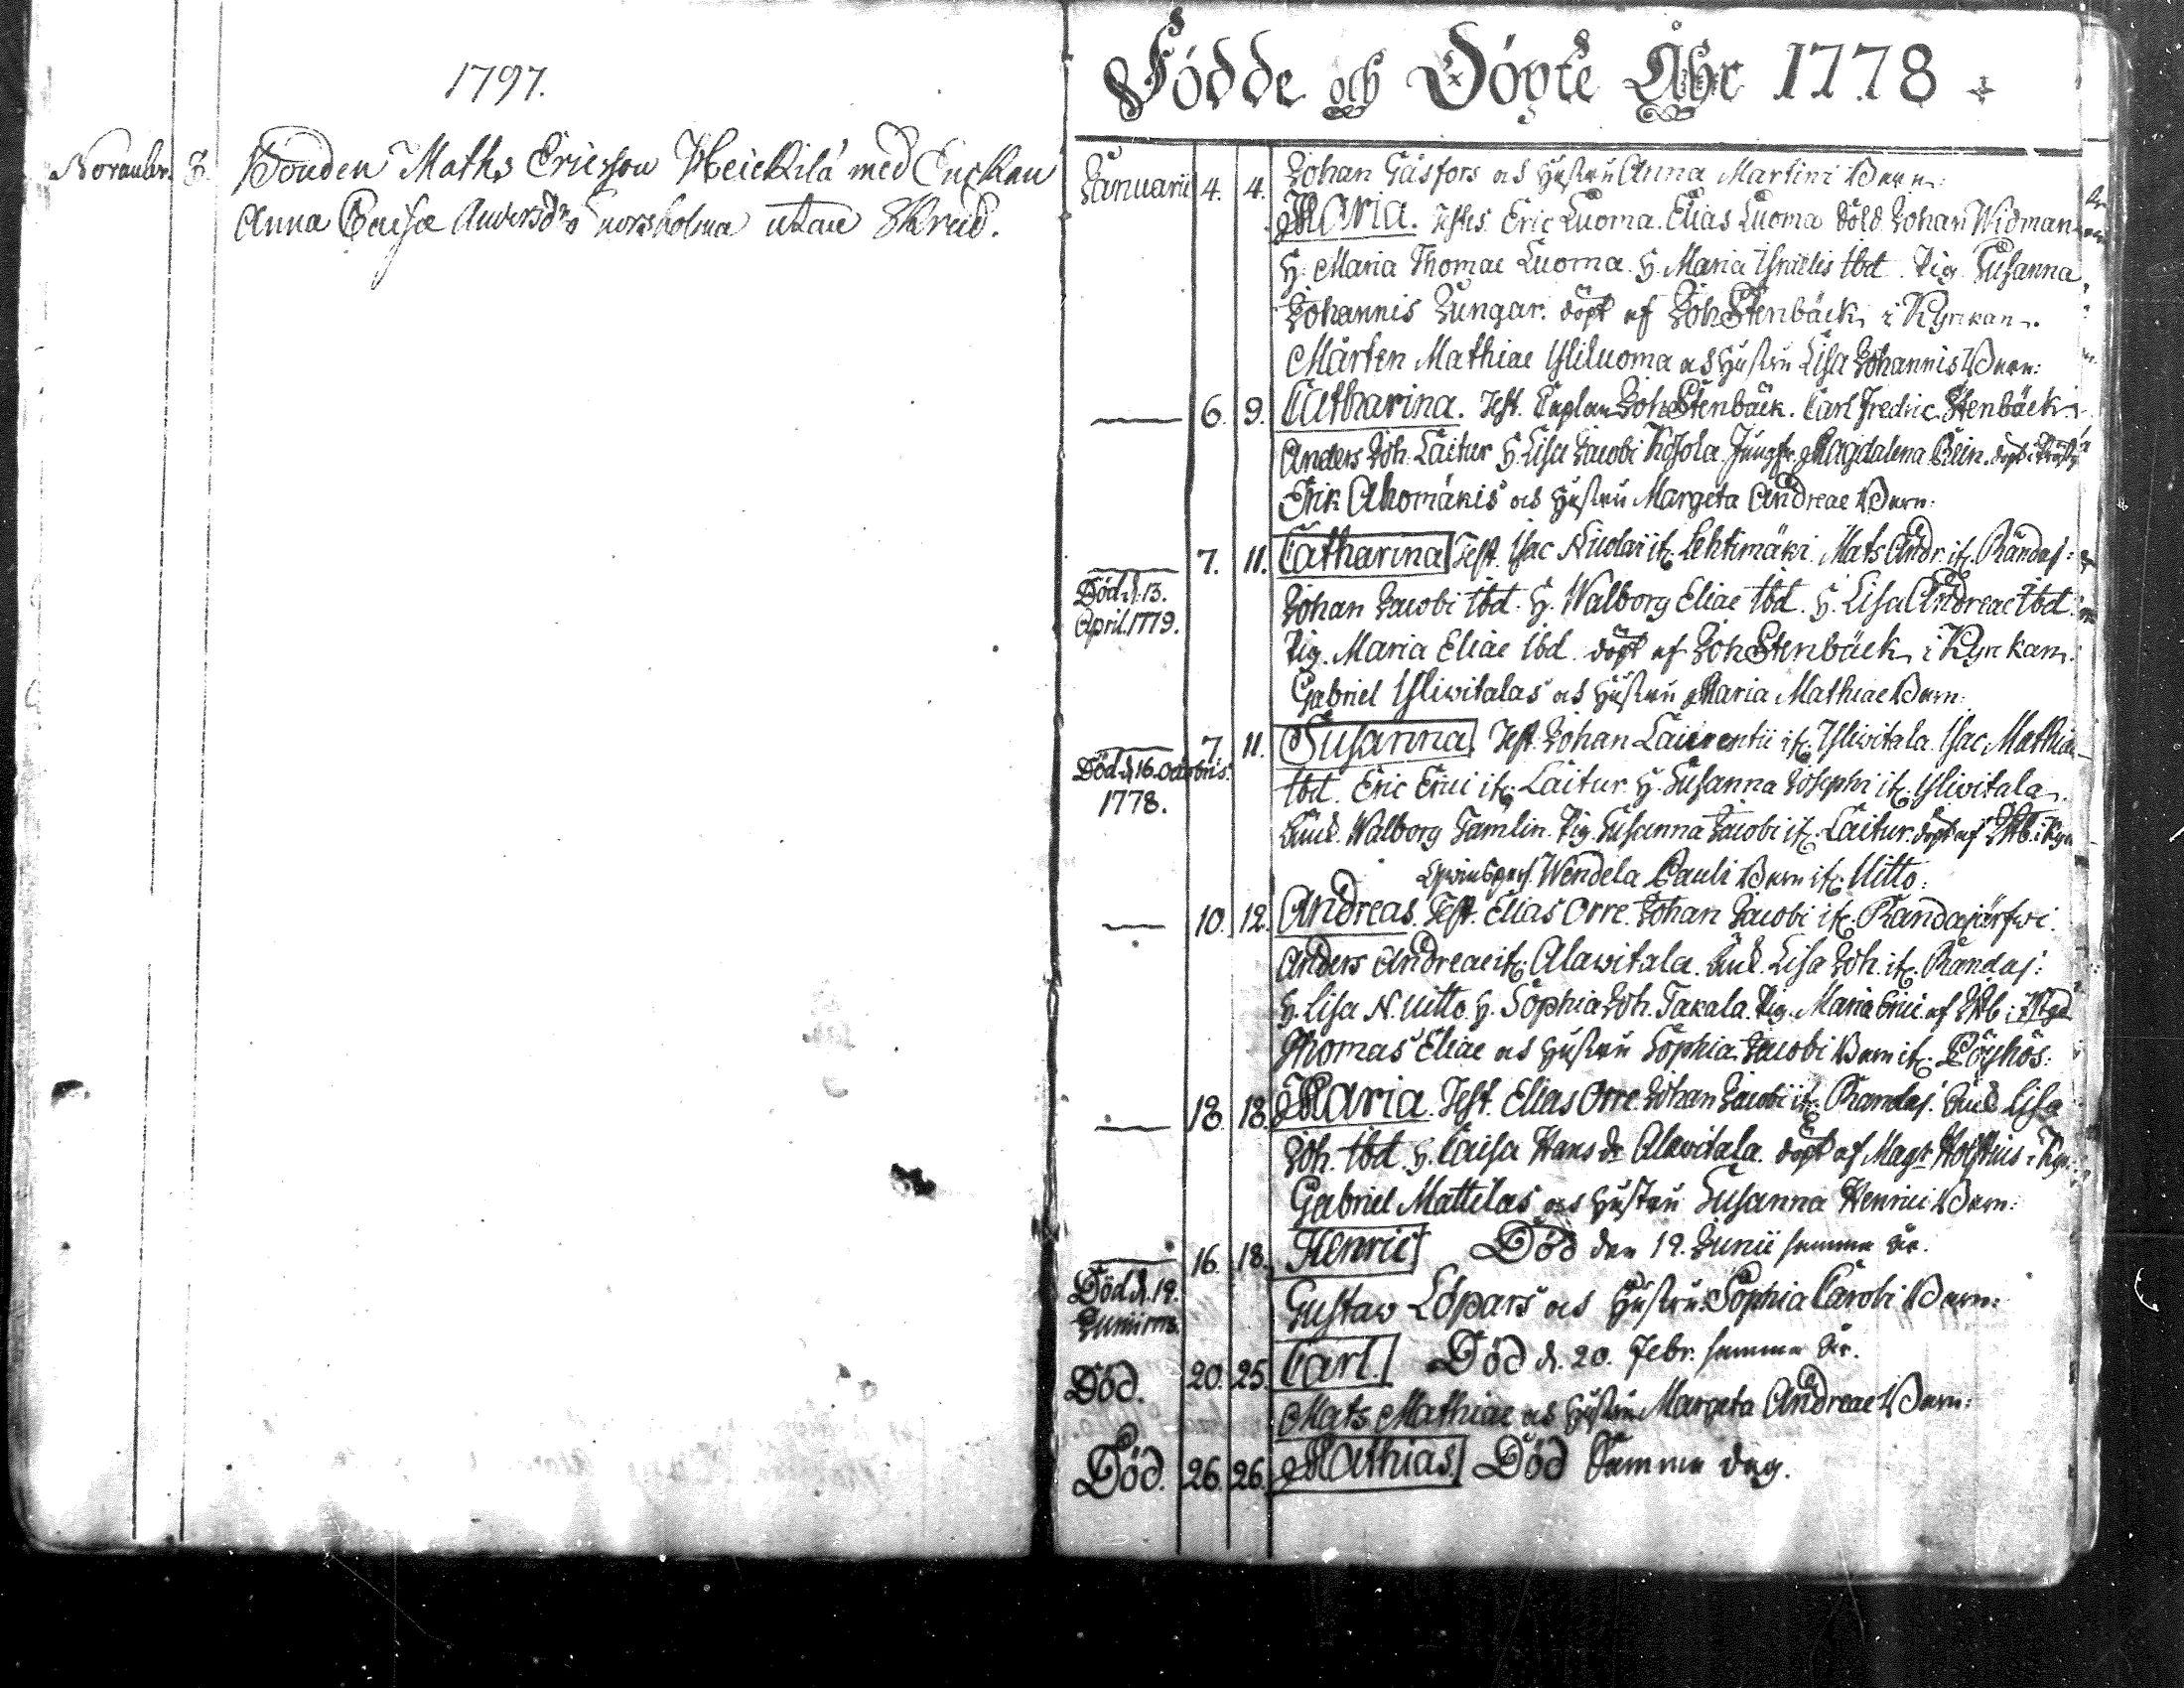 1797.
November. 3. Bonden Maths Ericsson Heickilä med Enckan
Anna Caisa Andersdr Knorsholma utan Skrud.
Födde och Döpte Åhr 1778
Januarii 4. 4. Johan Gåsfors och Hustru Anna Martini Barn:
Maria. Testes. Eric Luoma. Elias Luoma Sold. Johan Widman
H. Maria Thomae Luoma. H. Maria Israelis ibd. Pig. Susanna
Johannis Ljungar. döpt af Joh Stenbäck i Kyrkan.
Mårten Mathiae Yliluoma och Hustru Lisa Johannis Barn:
6. 9. Catharina. Test. Caplan Joh Stenbäck. Carl Fredric Stenbäck
Anders Joh. Laitur H. Lisa Jacobi Kosola Jungfr. Magdalena
Erik Ahomäkis och Hustru Margeta Andreae Barn:
7. 11. Catharina Test. Isac Nicolai it. Lehtimäki Mats Andr. it. Randaj:
Död d. 13.
April. 1779.
Johan Jacobi ibd. H. Walborg Eliae ibd. H. Lisa Andreae ibd.
Pig. Maria Eliae ibd. döpt af Joh Stenbäck i Kyrkan.
Gabriel Yliwitalas och Hustru Maria Mathiae Barn:
7. 11. Susanna Test. Johan Laurentii it. Yliwitala. Isac Mathiae
Död d. 16. Octobris.
1778.
ibd. Eric Erici it. Laitur. H. Susanna Josephi it. Yliwitala.
Walborg Tamlin. Pig. Susanna Jacobi it. Laitur. döpt af
Wendela Pauli Barn it. Uitto:
10. 12. Andreas. Test. Elias Orre. Johan Jacobi it. Randajärfwi.
Anders Andreae it. Alawitala. Lisa Joh. it. Randaj:
H. Lisa N. Uitto. H. Sophia Joh. Takala. Pig. Maria Erici. af
Thomas Eliae och Hustru Sophia Jacobi Barn it. Pöyhös:
18. 18. Maria. Test. Elias Orre. Johan Jacobi it. Randaj: Lisa
Joh. ibd. H. Caisa Hans dr Alawitala. döpt af Magr
Gabriel Mattilas och Hustru Susanna Henrici Barn:
16. 18. Henric Död den 19. Junii samma år.
Död d. 19.
Junii
Gustaw Lopars och Hustru Sophia Caroli Barn:
Död. 20. 25. Carl. Död d. 20. Febr. samma år.
Mats Mathiae och Hustru Margeta Andreae Barn:
Död. 26. 26. Mathias. Död Samma dag.